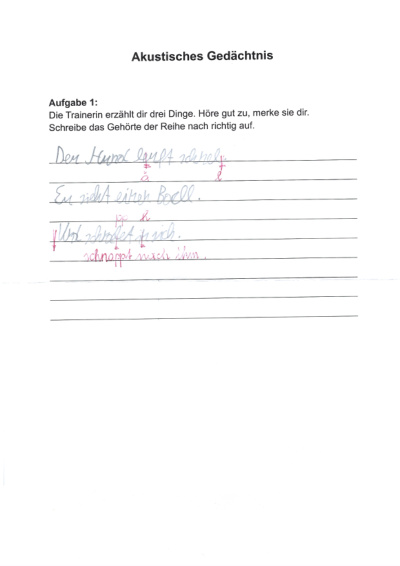 Akustisches Gedächtnis
Aufgabe 1:
Die Trainerin erzählt dir drei Dinge. Höre gut zu, merke sie dir.
Schreibe das Gehörte der Reihe nach richtig auf.
Der Hund lauft schnel.
ä l
Er sieht einen Boell.
pp h
Und
schnappt nach ihm.